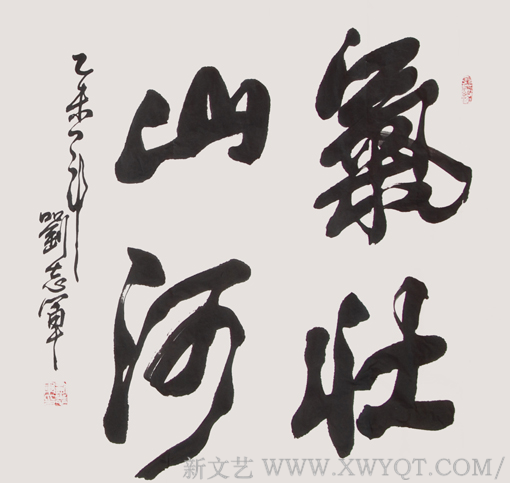 氣壯
山河
乙未年劉志軍
新文艺 WWW.XWYQT.COM/